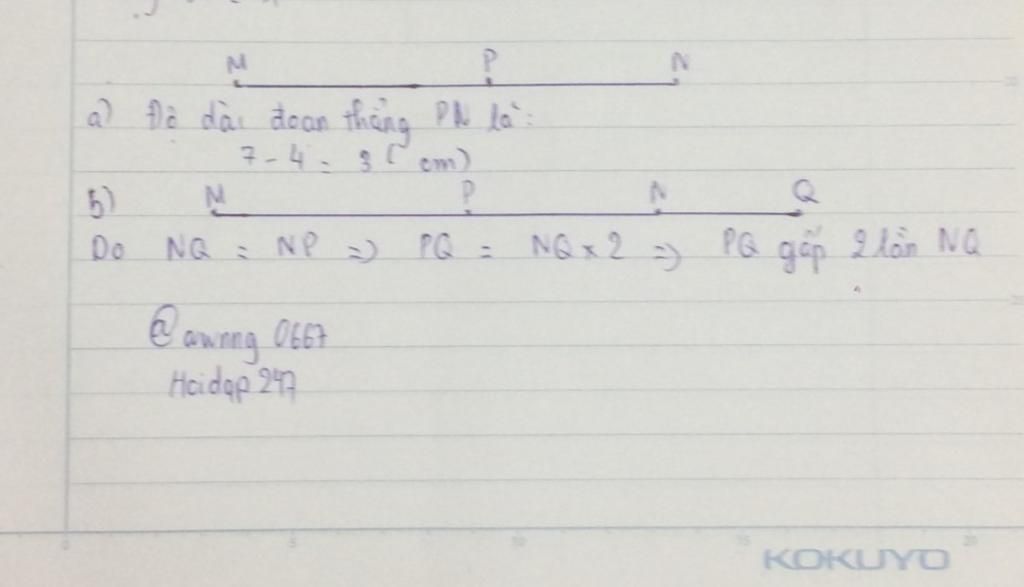 M P N
a) Độ dài đoan thẳng PN là:
7 - 4 = 3 ( cm)
b) M P N Q
Do NQ = NP => PQ = NQ x 2 => PQ gấp 2 lần NQ
@awnng 0667
Hoidap 247
0 5 10 15 20
KOKUYO